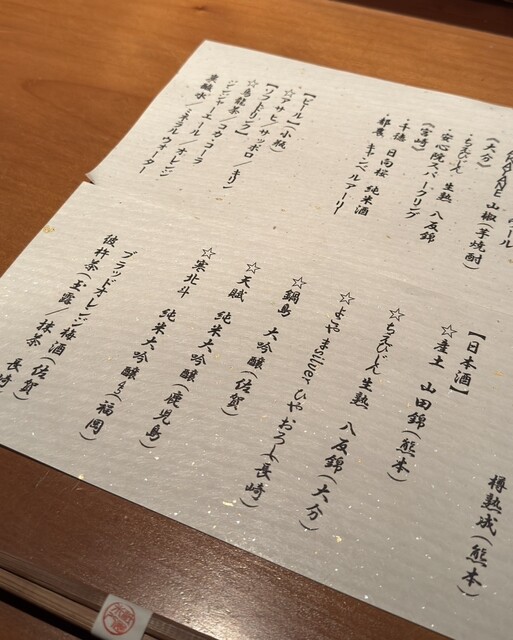 AKAYANE 山椒(芋焼酎)
(大分)
・ちえびじん 生熟 八反錦
・安心院スパークリング
(宮崎)
・千徳 日向桜 純米酒
都農 キャンベルアーリー
【ビール】(小瓶)
☆アサヒ/サッポロ/キリン
【ソフトドリンク】
☆烏龍茶/コカ・コーラ
ジンジャーエール/オレンジ
炭酸水/ミネラルウォーター
樽熟成(熊本)
【日本酒】
☆産土 山田錦(熊本)
☆ちえびじん 生熟 八反錦(大分)
☆よこやまsilver ひやおろし(長崎)
☆鍋島 大吟醸(佐賀)
☆天賦 純米大吟醸(鹿児島)
☆寒北斗 純米大吟醸44(福岡)
ブラッドオレンジ梅酒(佐賀)
彼杵茶(玉露/抹茶 長崎